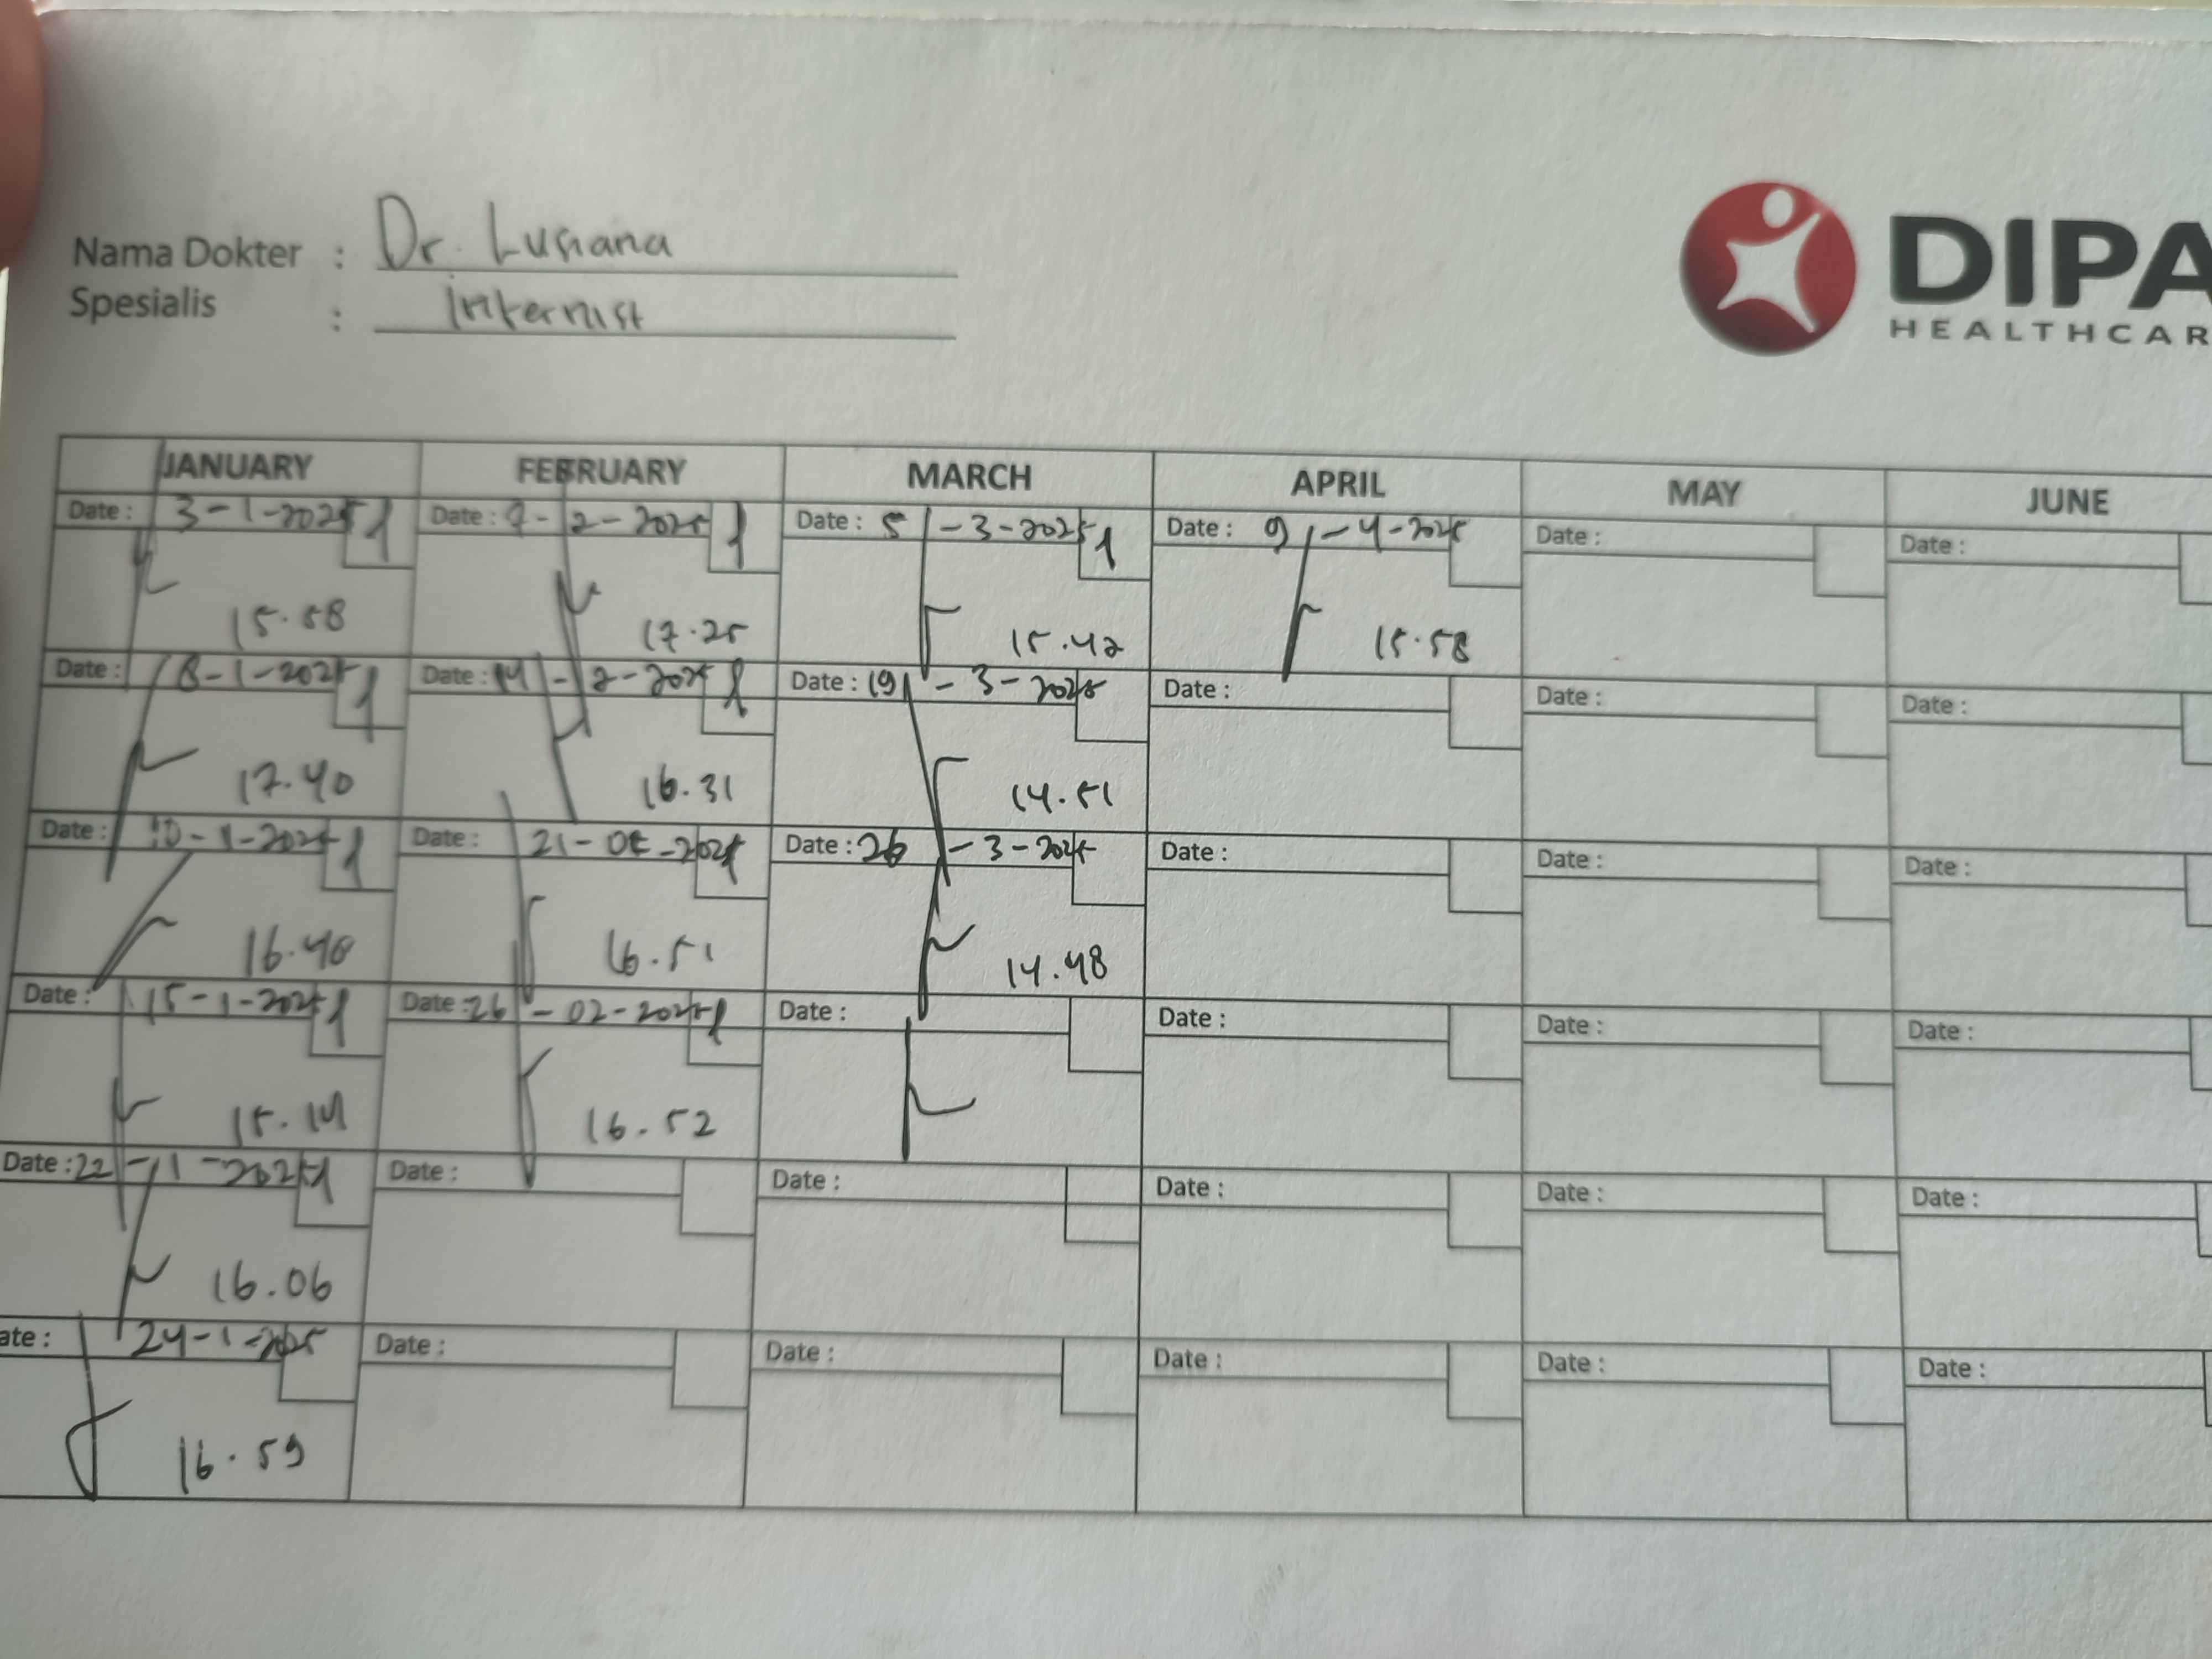 Nama Dokter : Dr. Lusiana
Spesialis : Internist
DIPA
HEALTHCAR
JANUARY FEBRUARY MARCH APRIL MAY JUNE
Date : 3-1-2025 Date : 7-2-2025 Date : 5-3-2025 Date : 9-4-2025 Date : Date :
15.58 17.25 15.42 15.58
Date : 8-1-2025 Date : 14-2-2025 Date : 19-3-2025 Date : Date : Date :
17.40 16.31 14.51
Date : 10-1-2025 Date : 21-02-2025 Date : 26-3-2025 Date : Date : Date :
16.48 16.51 14.48
Date : 15-1-2025 Date : 26-02-2025 Date : Date : Date : Date :
15.14 16.52
Date : 22-1-2025 Date : Date : Date : Date : Date :
16.06
ate : 24-1-2025 Date : Date : Date : Date : Date :
16.59